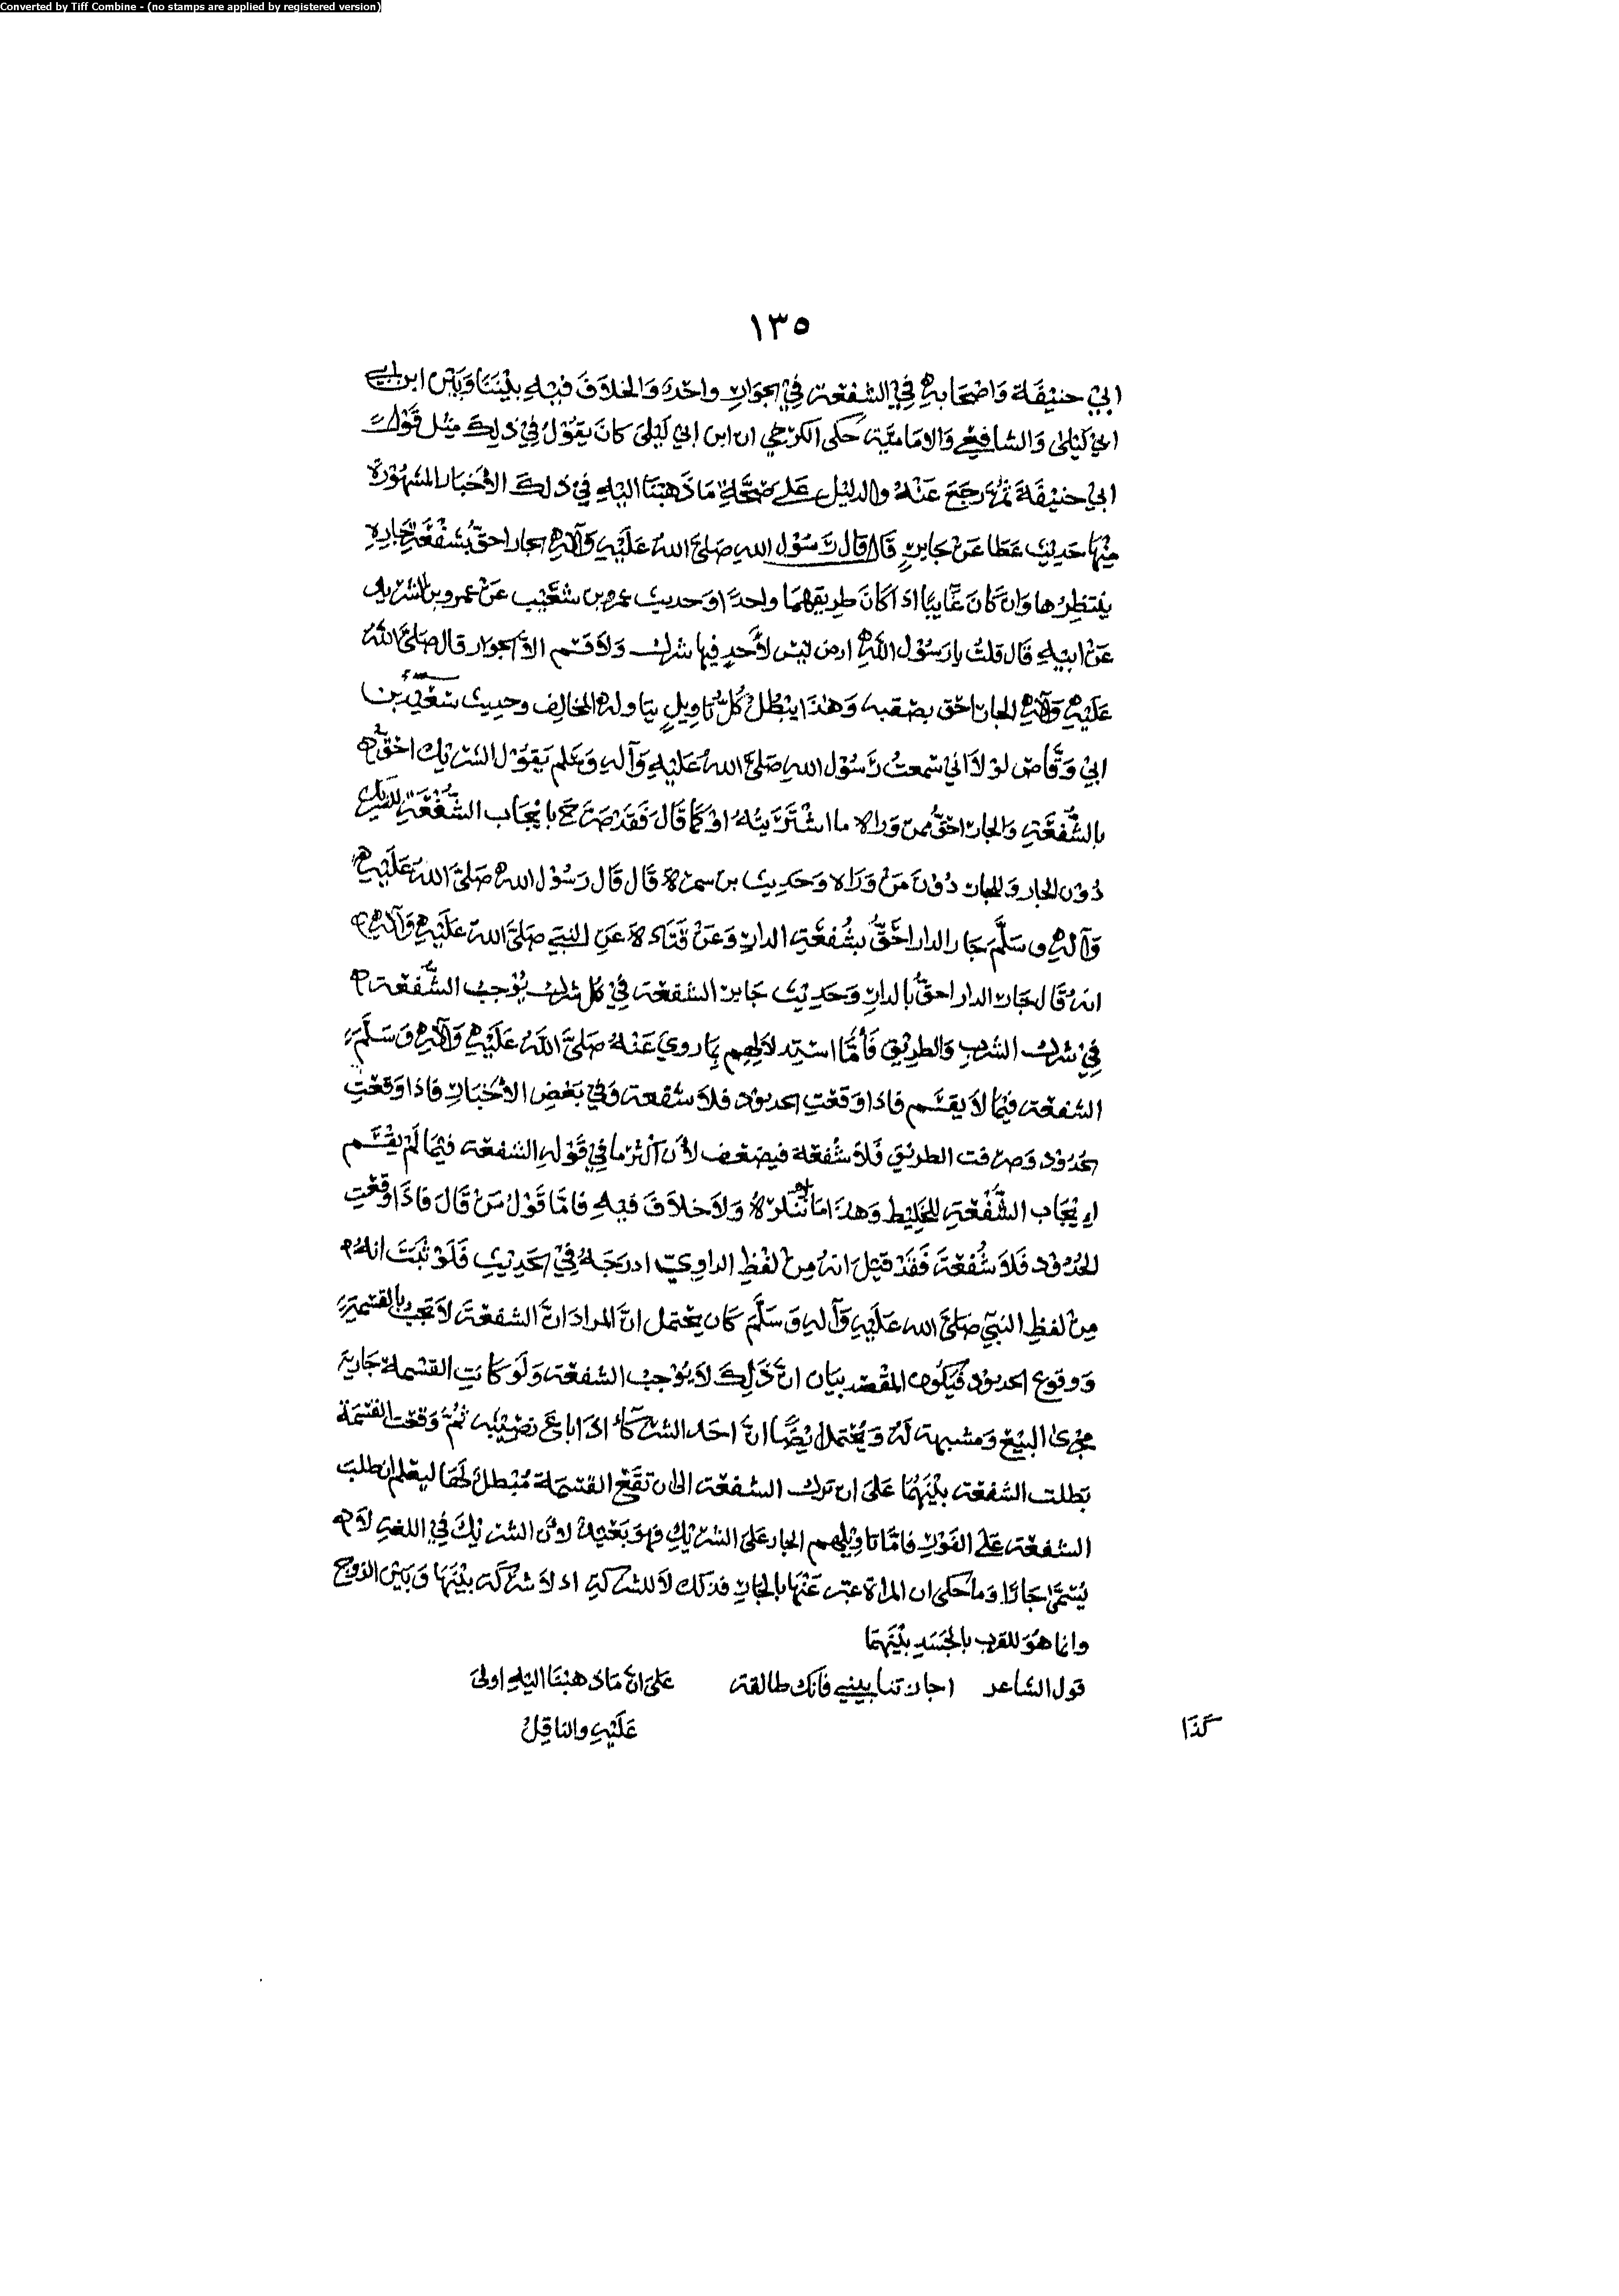 Converted by Tiff Combine - (no stamps are applied by registered version)
١٣٥
ابي حنيفة واصحابه في الشفعة في الجوار واحد والخلاف فيه بيننا وبين ابن ابي
ابي ليلى والشافعي والامامية حكى الكرخي ان ابن ابي ليلى كان يقول في ذلك مثل قول
ابي حنيفة ثم رجع عنه والدليل على صحة ما ذهبنا اليه في ذلك الأخبار المشهورة
منها حديث عطا عن جابر قال قال رسول الله صلى الله عليه وآله الجار احق بشفعة جاره
ينتظرها وان كان غايبا اذا كان طريقهما واحدا وحديث عمرو بن شعيب عن عمرو بن الشريد
عن ابيه قال قلت يا رسول الله ارض ليس لأحد فيها شرك ولا قسم الا الجوار قال صلى الله
عليه وآله الجار احق بصقبه وهذا يبطل كل تاويل يتاوله المخالف وحديث سعيد بن
ابي وقاص لولا اني سمعت رسول الله صلى الله عليه وآله وسلم يقول الشريك احق
بالشفعة والجار احق ممن وراه ما اشتريته او كما قال فقد صرح بايجاب الشفعة للشريك
دون الجار وللجار دون من وراه وحديث بن سمرة قال قال رسول الله صلى الله عليه
وآله وسلم جار الدار احق بشفعة الدار وعن قتاده عن النبي صلى الله عليه وآله
انه قال جار الدار احق بالدار وحديث جابر الشفعة في كل شرك يوجب الشفعة
في شرك الشرب والطريق فأما استدلالهم بما روي عنه صلى الله عليه وآله وسلم
الشفعة فيما لا يقسم فاذا وقعت الحدود فلا شفعة وفي بعض الأخبار فاذا وقعت
الحدود وصرفت الطريق فلا شفعة فيضعف لأن أكثر ما في قوله الشفعة فيما لم يقسم
ايجاب الشفعة للخليط وهذا ما لا ننكره ولا خلاف فيه فاما قول من قال فاذا وقعت
الحدود فلا شفعة فقد قيل انه من لفظ الراوي ادرجه في الحديث فلو ثبت انه
من لفظ النبي صلى الله عليه وآله وسلم كان يحتمل ان المراد ان الشفعة لا تجب بالقسمة
ووقوع الحدود فيكون المقصد بيان ان ذلك لا يوجب الشفعة ولو كانت القسمة جارية
مجرى البيع ومشبهة له ويحتمل ايضا ان احد الشركاء اذا باع نصيبه ثم وقعت القسمة
بطلت الشفعة بينهما على ان ترك الشفعة الى ان تقع القسمة مبطل لها ليعلم ان طلب
الشفعة على الفور فاما تاويلهم الجار على الشريك فهو بعيد لأن الشريك في اللغة لا
يسمى جارا وما حكى ان المراة عبر عنها بالجار فذلك لا للشركة اذ لا شركة بينها وبين الزوج
وانما هو للقرب بالجسد بينهما
قول الشاعر اجارتنا بيني فانك طالقة على ان ما ذهبنا اليه اولى
كذا عليه والناقل